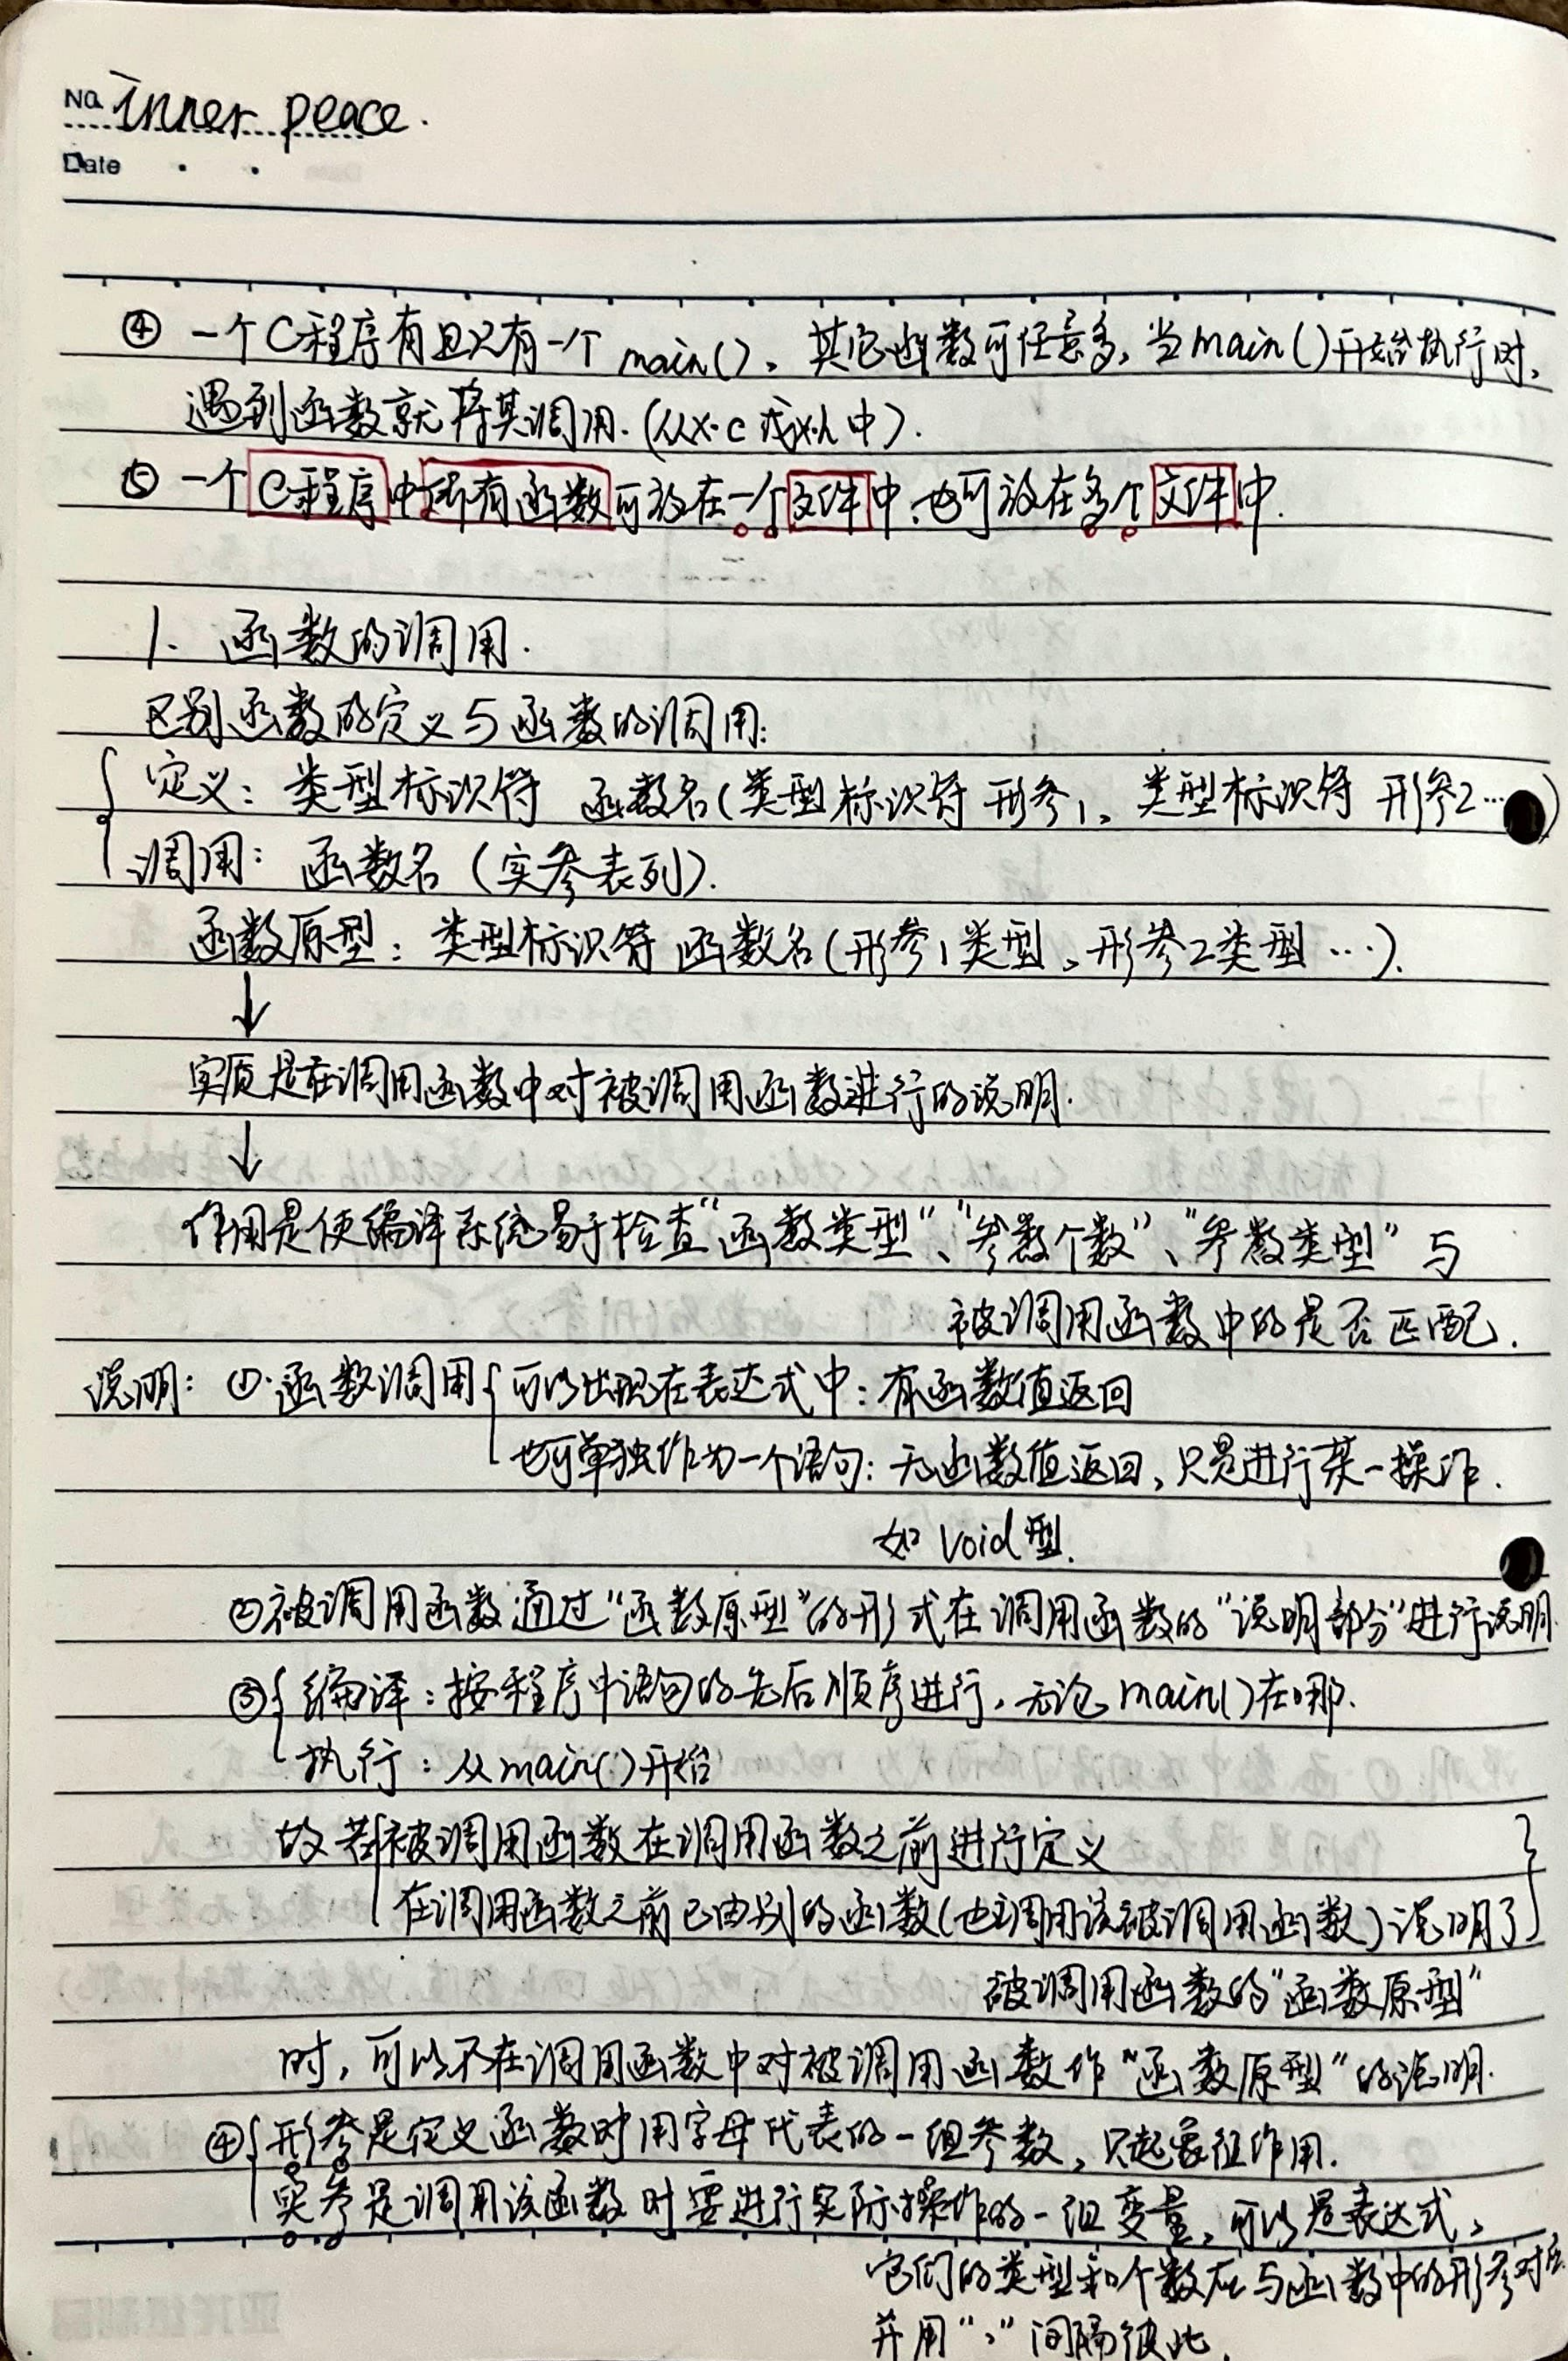 No. inner peace.
Date
④ 一个C程序有且只有一个 main()。其它函数可任意多,当main()开始执行时,
遇到函数就将其调用.(从x.c 或x.h 中).
⑤ 一个C程序中所有函数可放在一个文件中,也可放在多个文件中.
1. 函数的调用.
区别函数的定义与函数的调用:
定义: 类型标识符 函数名(类型标识符 形参1, 类型标识符 形参2…)
调用: 函数名 (实参表列).
函数原型: 类型标识符 函数名(形参1类型, 形参2类型 …).
↓
实质是在调用函数中对被调用函数进行的说明.
↓
作用是使编译系统易于检查“函数类型”、“参数个数”、“参数类型” 与
被调用函数中的是否匹配.
说明: ①.函数调用{可以出现在表达式中: 有函数值返回
也可单独作为一个语句: 无函数值返回,只是进行某一操作.
如 void型.
②被调用函数通过“函数原型”的形式在调用函数的“说明部分”进行说明.
③{编译: 按程序中语句的先后顺序进行, 无论main()在哪.
执行: 从main()开始
故若{被调用函数在调用函数之前进行定义
在调用函数之前已由别的函数(也调用该被调用函数)说明了}
被调用函数的“函数原型”
时, 可以不在调用函数中对被调用函数作“函数原型”的说明.
④{形参是定义函数时用字母代表的一组参数, 只起象征作用.
实参是调用该函数时要进行实际操作的一组变量, 可以是表达式,
它们的类型和个数应与函数中的形参对应
并用“,”间隔彼此.